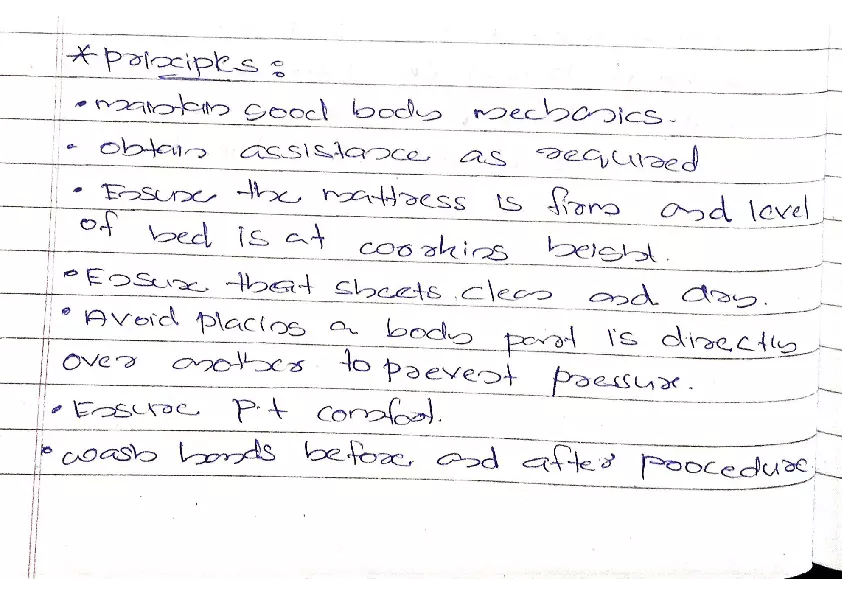 * Principles :
• maintain good body mechanics.
• obtain assistance as required
• Ensure the mattress is firm and level
of bed is at working height.
• Ensure that sheets. clean and dry.
• Avoid placing a body part is directly
over another to prevent pressure.
• Ensure P.t comfort.
• wash hands before and after procedure